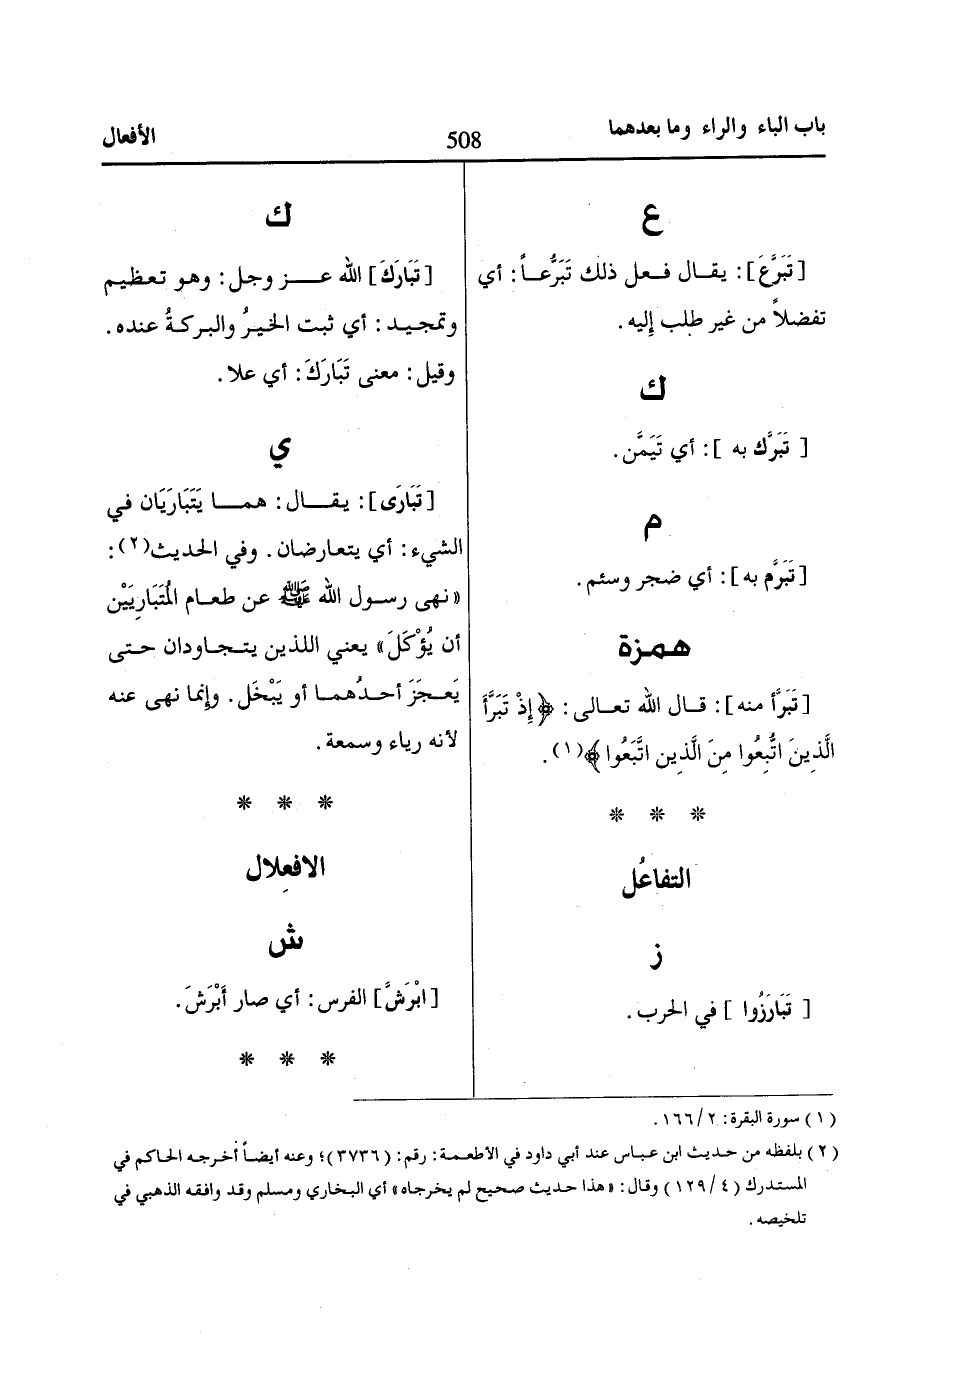 باب الباء والراء وما بعدهما
508
الأفعال
ع
[تَبَرَّعَ]: يقال فعل ذلك تَبَرُّعاً: أي
تفضلاً من غير طلب إليه.
ك
[ تَبَرَّك به ]: أي تَيَمَّن.
م
[تَبَرَّم به]: أي ضجر وسئم.
همزة
[تَبَرَّأ منه]: قال الله تعالى: ﴿إِذْ تَبَرَّأَ
الَّذِينَ اتُّبِعُوا مِنَ الَّذِين اتَّبَعُوا﴾(١).
* * *
التفاعُل
ز
[ تَبَارَزُوا ] في الحرب.
ك
[تَبَارَكَ] الله عز وجل: وهو تعظيم
وتمجيد: أي ثبت الخيرُ والبركةُ عنده.
وقيل: معنى تَبَارَكَ: أي علا.
ي
[تَبَارَى]: يقال: هما يَتَبَارَيَان في
الشيء: أي يتعارضان. وفي الحديث(٢):
«نهى رسول الله ﷺ عن طعام المُتَبَارِيَيْن
أن يُؤْكَلَ» يعني اللذين يتجاودان حتى
يَعجَزَ أحدُهما أو يَبْخَل. وإنما نهى عنه
لأنه رياء وسمعة.
* * *
الافعِلال
ش
[ابْرَشَّ] الفرس: أي صار أَبْرَشَ.
* * *
(١) سورة البقرة: ١٦٦/٢.
(٢) بلفظه من حديث ابن عباس عند أبي داود في الأطعمة: رقم: (٣٧٣٦)؛ وعنه أيضاً أخرجه الحاكم في
المستدرك (١٢٩/٤) وقال: «هذا حديث صحيح لم يخرجاه» أي البخاري ومسلم وقد وافقه الذهبي في
تلخيصه.